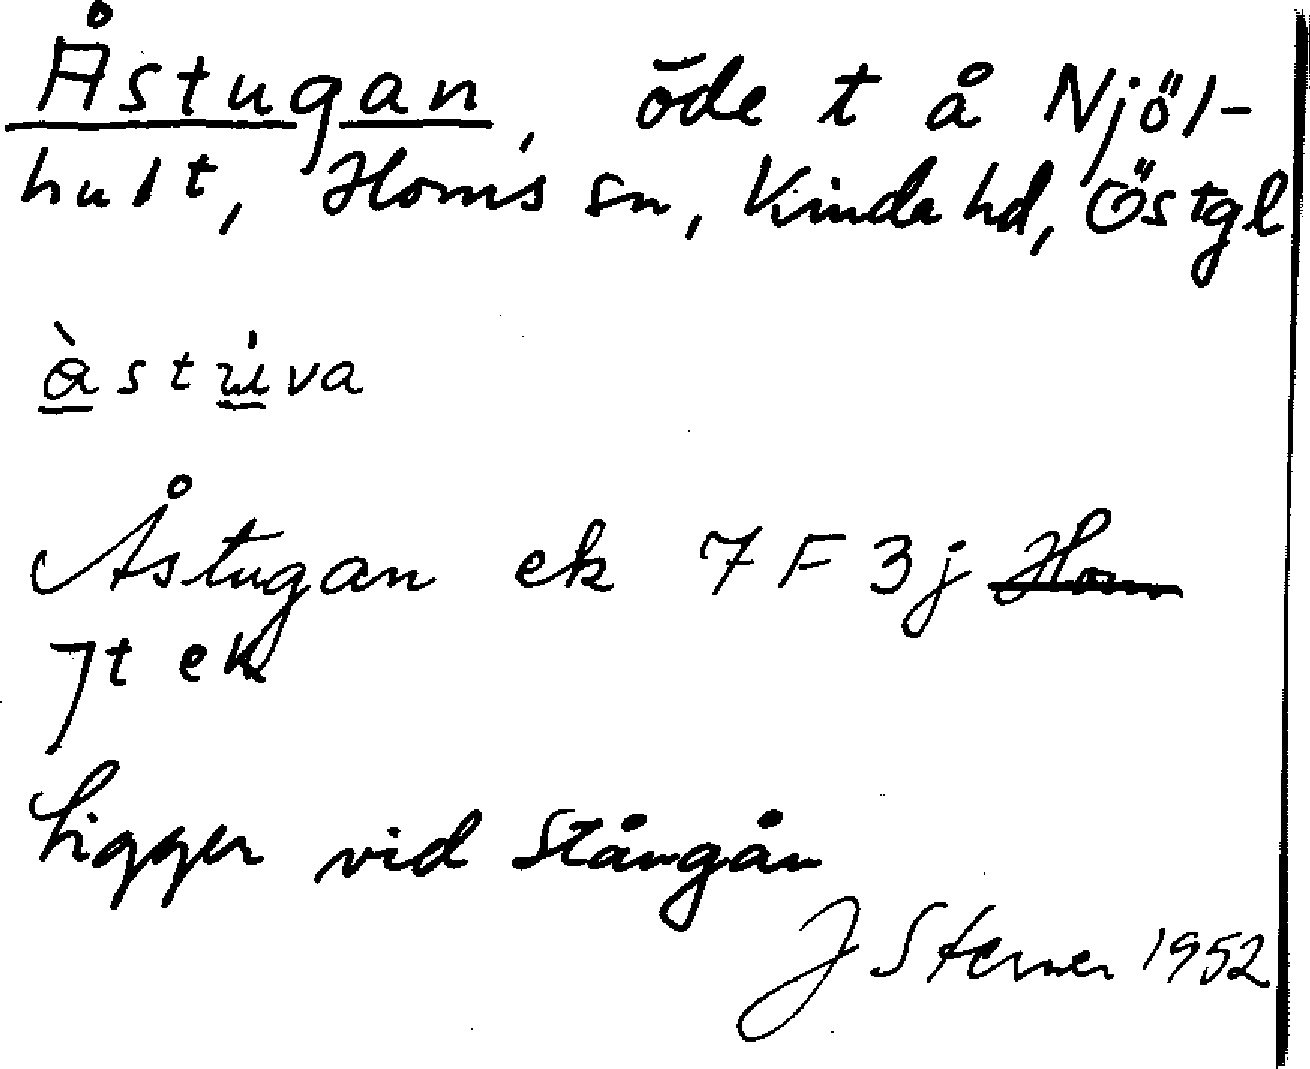 Åstugan, öde t å Njöl-
hult, Horns sn, Kinda hd, Östgl
å̀stu̇va
Åstugan ek 7F3j ~~Horn~~
Jt ek
Ligger vid Stångån
J Sterner 1952